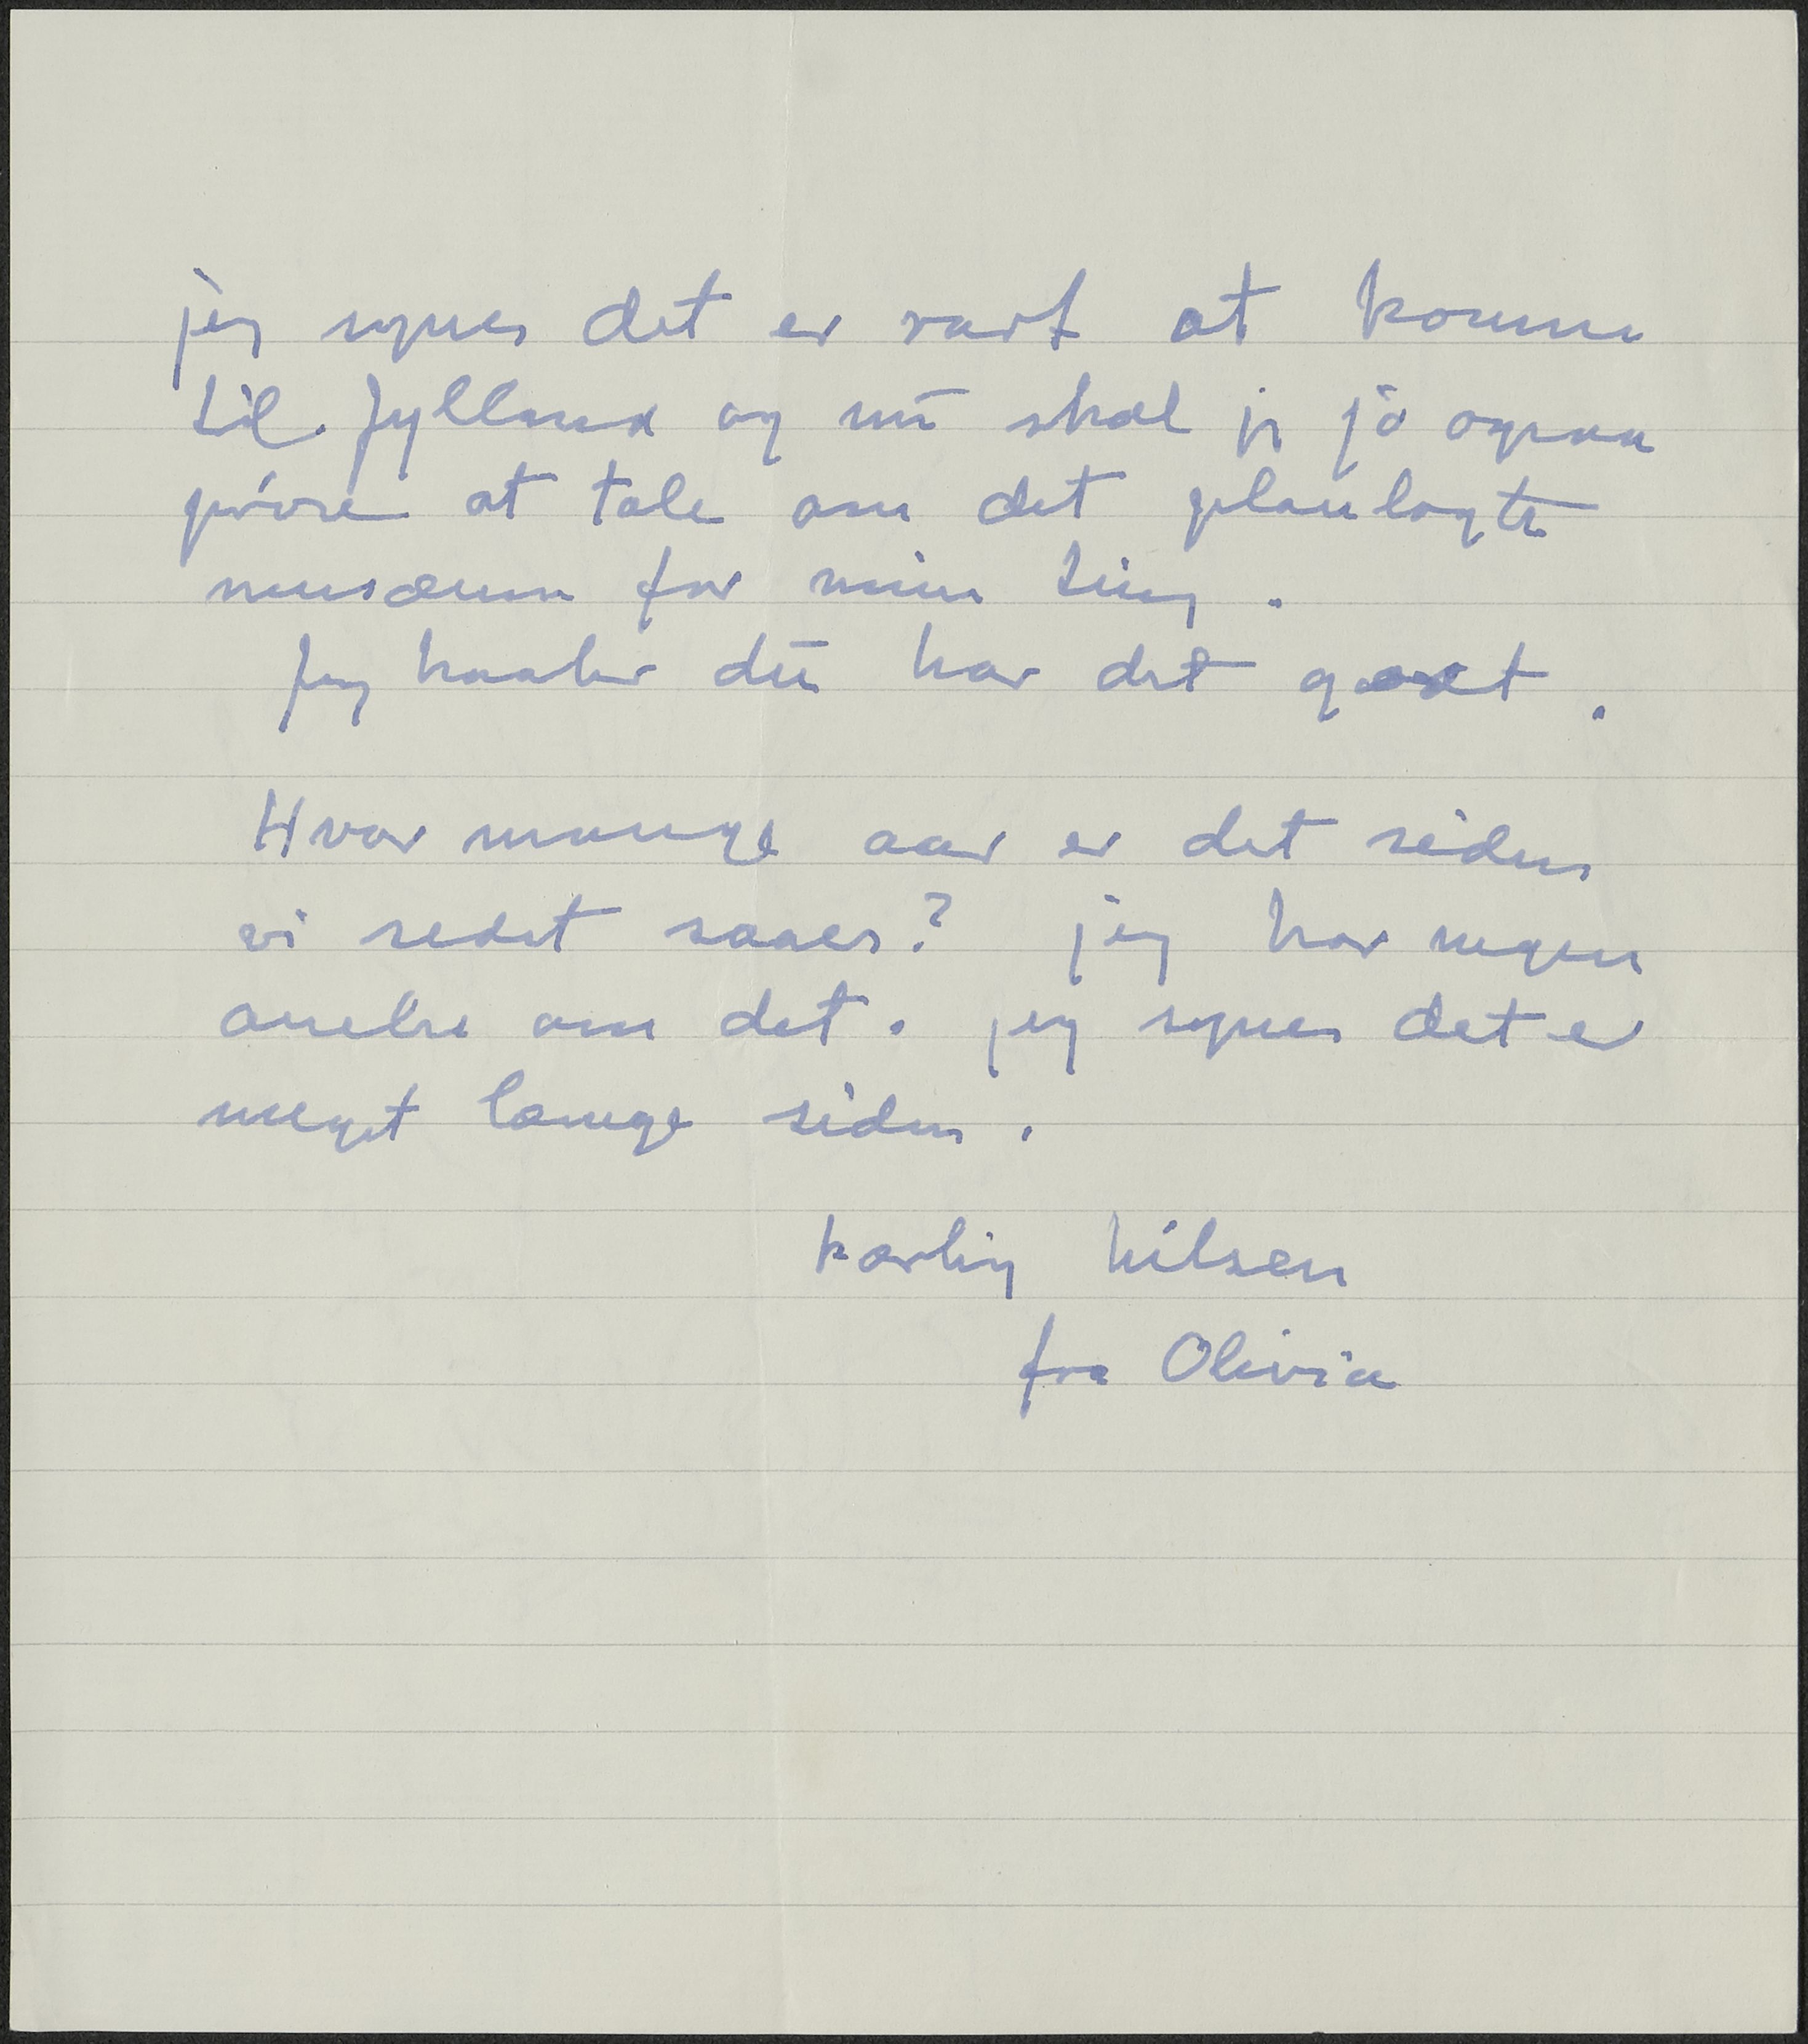 jeg synes det er rart at komme
til Jylland og nu skal jeg jo ogsaa
prøve at tale om det planlagte
musæum for mine ting.
Jeg haaber du har det godt.
Hvor mange aar er det siden
vi sedst saaes? jeg har ingen
anelse om det. jeg synes det er
meget længe siden.
kærlig hilsen
fra Olivia